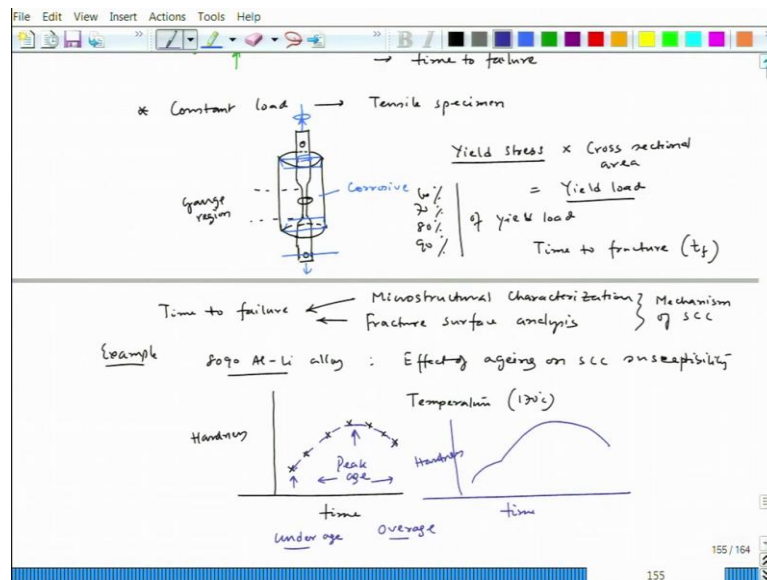 File Edit View Insert Actions Tools Help
→ time to failure
* Constant load → Tensile specimen
Yield stress × Cross sectional area
= Yield load
Gauge region
Corrosive
60%
70%
80%
90%
of yield load
Time to fracture (tf)
Time to failure ← Microstructural Characterization
← Fracture surface analysis
} Mechanism of SCC
Example 8090 Al-Li alloy : Effect of ageing on SCC susceptibility
Temperature (170°C)
Hardness
Peak age
time
under age overage
Hardness
time
155 / 164
155